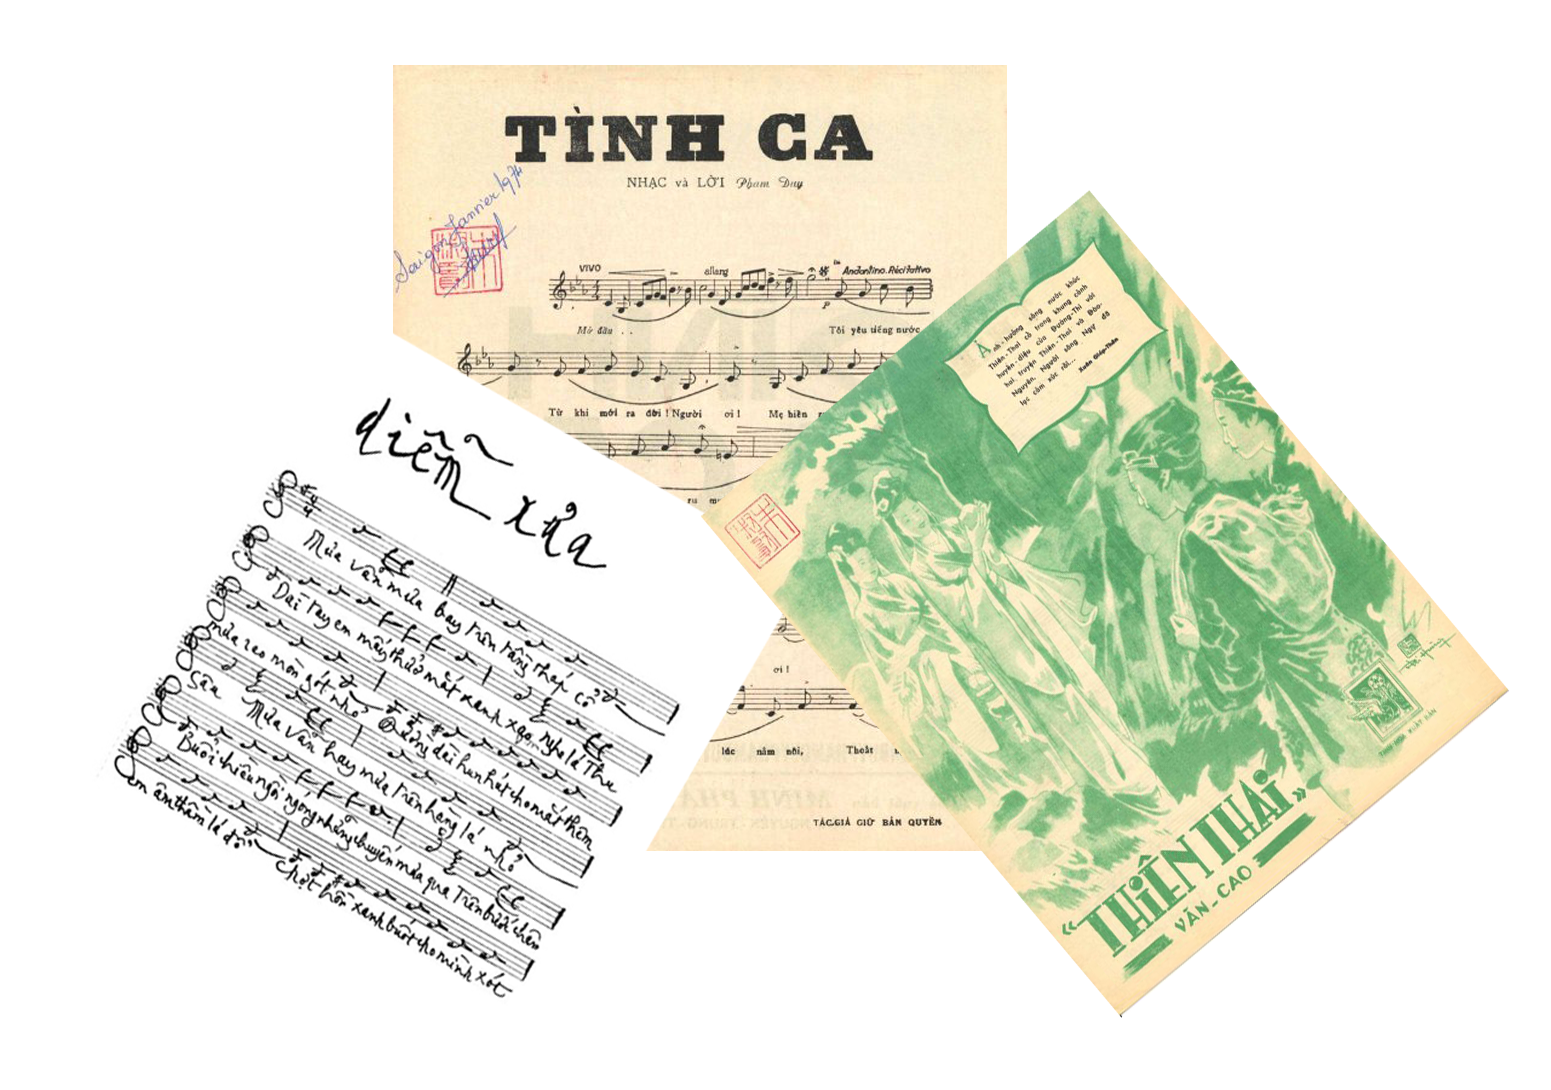 TÌNH CA
NHẠC và LỜI Phạm Duy
Saigon Janvier 1974
VIVO
allang
Andantino. Récitativo
Mở đầu . .
Tôi yêu tiếng nước
Từ khi mới ra đời ! Người ơi ! Mẹ hiền
ru
ơi !
lóc nằm nôi, Thoắt
MINH PHÁ
TÁC.GIẢ GIỮ BẢN QUYỀN
diễm xưa
Mưa vẫn mưa bay trên tầng tháp cổ
Dài tay em mấy thưở mắt xanh xao nghe lá thu
mưa reo mòn gót nhỏ Đường dài hun hút cho mắt thêm
sâu Mưa vẫn hay mưa trên hàng lá nhỏ
Buổi chiều ngồi ngóng những chuyến mưa qua Trên bước chân
em âm thầm lá đổ Chợt hồn xanh buốt cho mình xót
Ảnh-hưởng sông nước khúc
Thiên-Thai cô trong khung cảnh
huyền-diệu của Đường-Thi với
hai truyện Thiên-Thai và Đào-
Nguyên. Người sông Ngự đã
lạc cảm xúc rồi...
Xuân Giáp-Thân
« THIÊN THAI »
VĂN_CAO